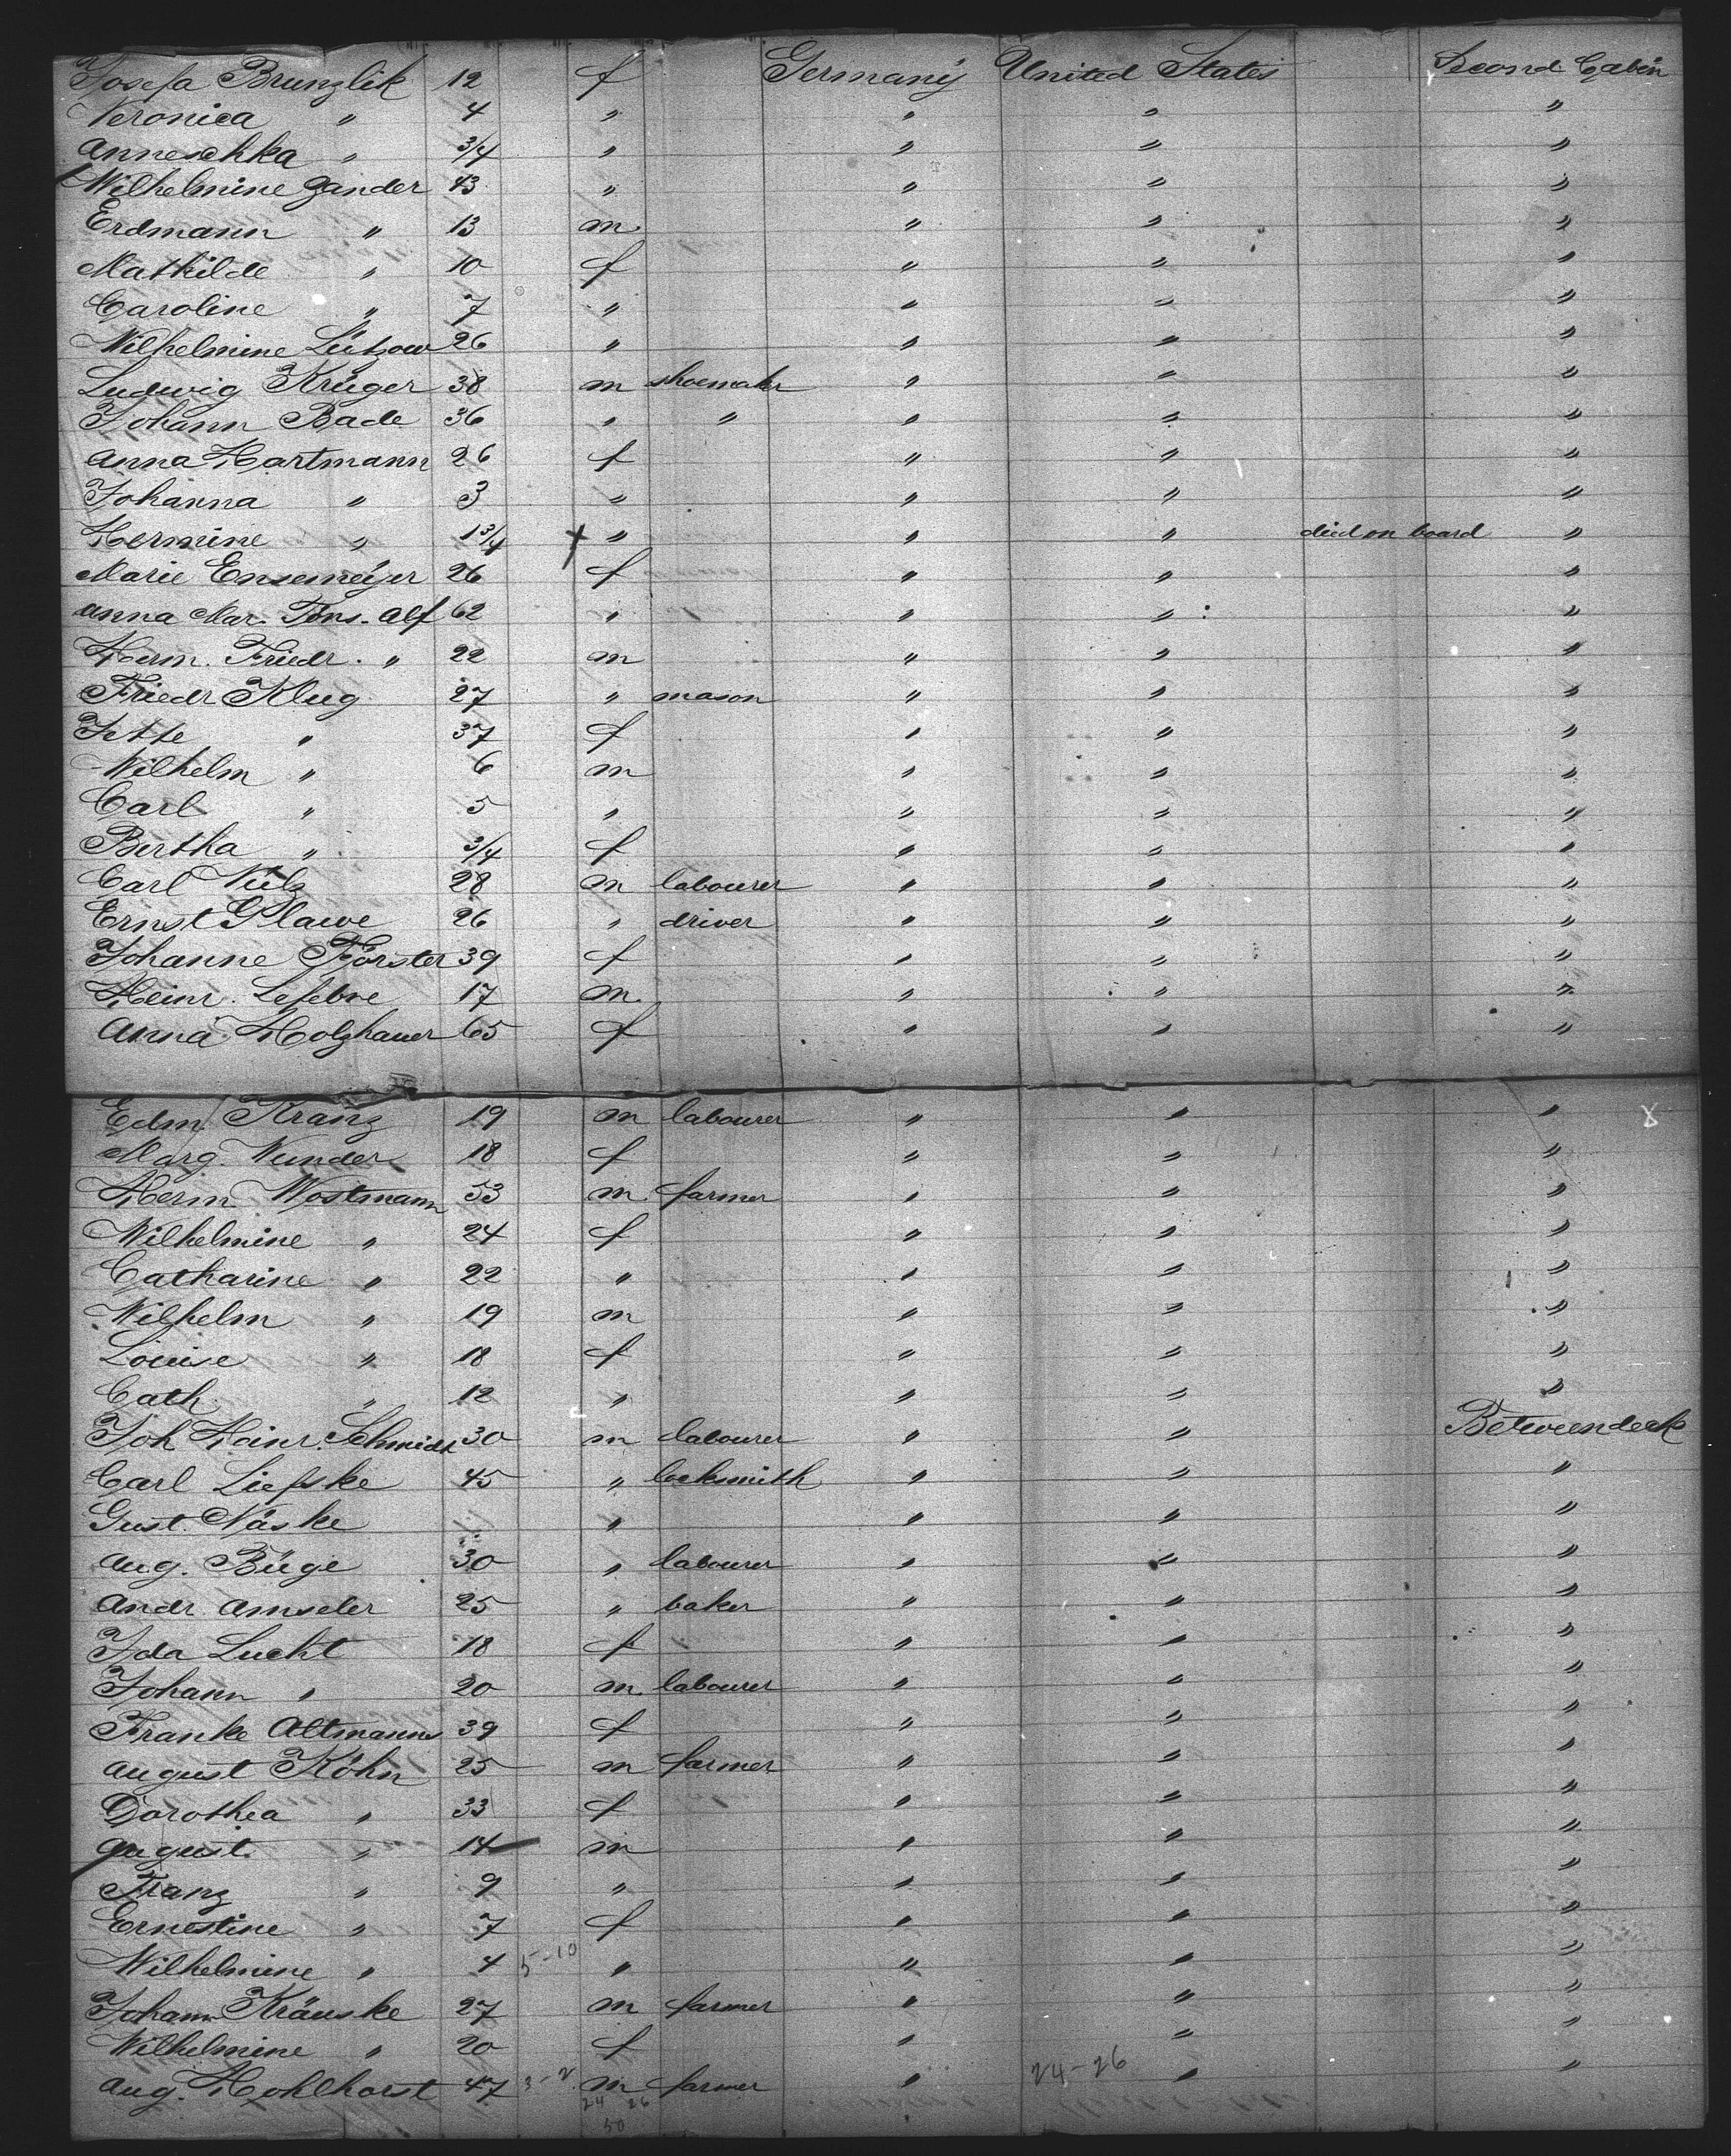 Josefa Brunzlik 12 f Germany United States Second Cabin
Veronica " 4 " " " "
Anneschka " 3/4 " " " "
Wilhelmine Zander 43 " " " "
Erdmann " 13 m. " " "
Mathilde " 10 f " " "
Caroline " 7 " " " "
Wilhelmine Lützow 26 " " " "
Ludwig Krüger 38 m shoemaker " " "
Johann Bade 36 " " " " "
Anna Hartmann 26 f " " "
Johanna " 3 " " " "
Hermine " 1 3/4 x " " " died on board "
Marie Ensemeijer 26 f " " "
Anna Mar. Alf 62 " " " "
Herm. Friedr. " 22 m " " "
Friedr Klug 27 " mason " " "
Jette " 37 f " " "
Wilhelm " 6 m " " "
Carl " 5 " " " "
Bertha " 3/4 f " " "
Carl Külz 28 m labourer " " "
Ernst Glawe 26 " driver " " "
Johanne Förster 39 f " " "
Heinr. Lefebre 17 m. " " "
Anna Holzhauer 65 f " " "
Edm. Kranz 19 m labourer " " "
Marg. Wunder 18 f " " "
Herm Wostmann 53 m. farmer " " "
Wilhelmine " 24 f " " "
Catharine " 22 " " " "
Wilhelm " 19 m " " "
Louise " 18 f " " "
Cath. " 12 " " " "
Joh Heinr. Schmidt 30 m labourer " " Betweendeck
Carl Liefske 45 " locksmith " " "
Gust. Näske " " " "
Aug. Büge 30 " labourer " " "
Andr. Amseler 25 " baker " " "
Ida Lucht 18 f " " "
Johann " 20 m. labourer " " "
Franke Altmanns 39 f " " "
August Köhn 25 m farmer " " "
Dorothea " 33 f " " "
August. " 14 m " " "
Franz " 9 " " " "
Ernestine " 7 f " " "
Wilhelmine " 4 5-10 " " " "
Johann Kräuske 27 m farmer " " "
Wilhelmine " 20 f " " "
Aug. Hohlhorst 47 3-2 m farmer " 24-26 " "
24 26
50